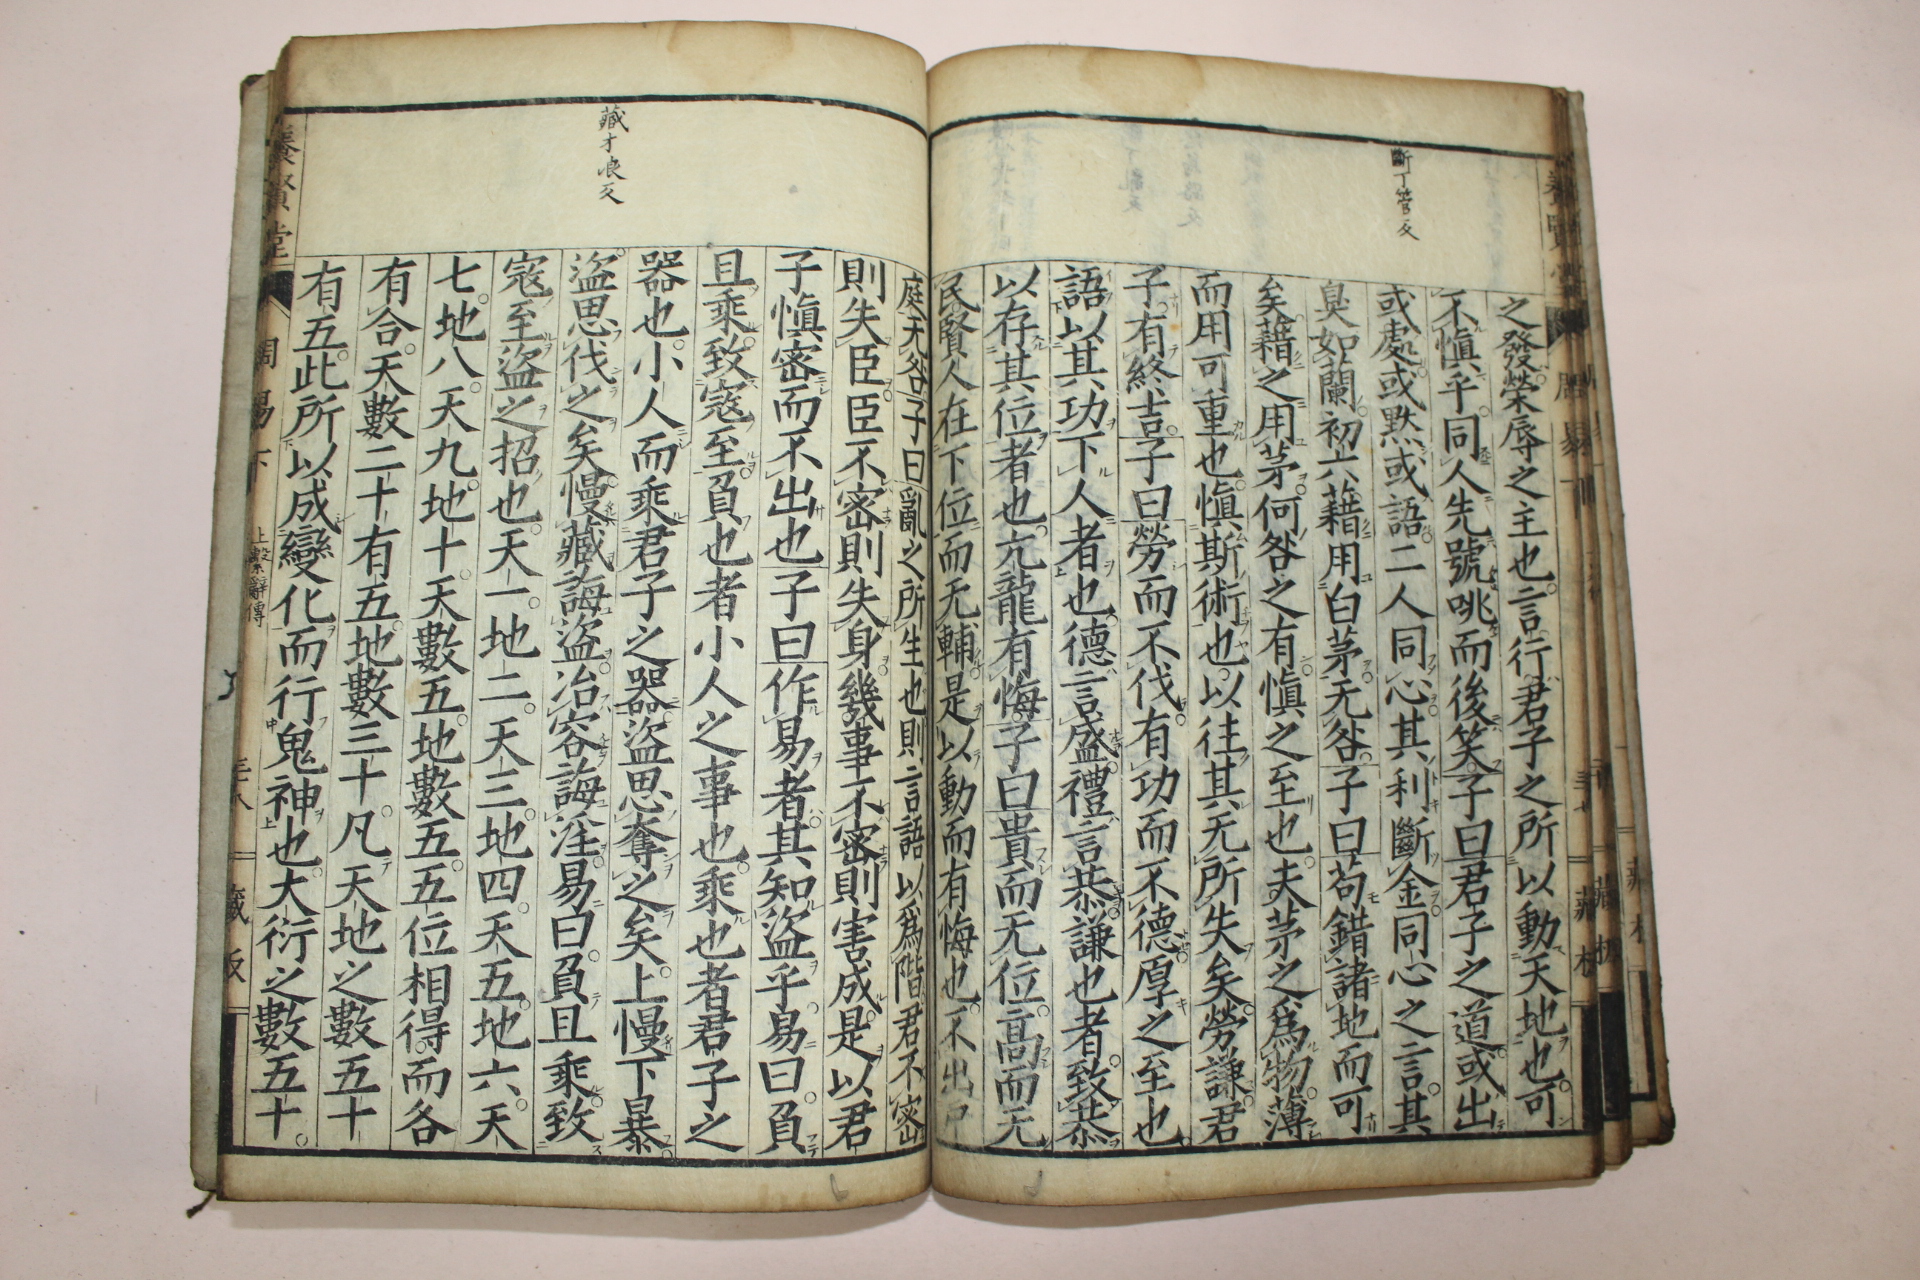 斷丁管反
之發榮辱之主也言行君子之所以動天地也可
不愼乎同人先號咷而後笑子曰君子之道或出
或處或默或語二人同心其利斷金同心之言其
臭如蘭初六藉用白茅无咎子曰苟錯諸地而可
矣藉之用茅何咎之有愼之至也夫茅之爲物薄
而用可重也愼斯術也以往其无所失矣勞謙君
子有終吉子曰勞而不伐有功而不德厚之至也
語以其功下人者也德言盛禮言恭謙也者致恭
以存其位者也亢龍有悔子曰貴而无位高而无
民賢人在下位而无輔是以動而有悔也不出戶
藏才浪反
庭无咎子曰亂之所生也則言語以爲階君不密
則失臣臣不密則失身幾事不密則害成是以君
子愼密而不出也子曰作易者其知盜乎易曰負
且乘致寇至負也者小人之事也乘也者君子之
器也小人而乘君子之器盜思奪之矣上慢下暴
盜思伐之矣慢藏誨盜冶容誨淫易曰負且乘致
寇至盜之招也天一地二天三地四天五地六天
七地八天九地十天數五地數五五位相得而各
有合天數二十有五地數三十凡天地之數五十
有五此所以成變化而行鬼神也大衍之數五十
養賢堂
周易下
上繫辭傳
藏板